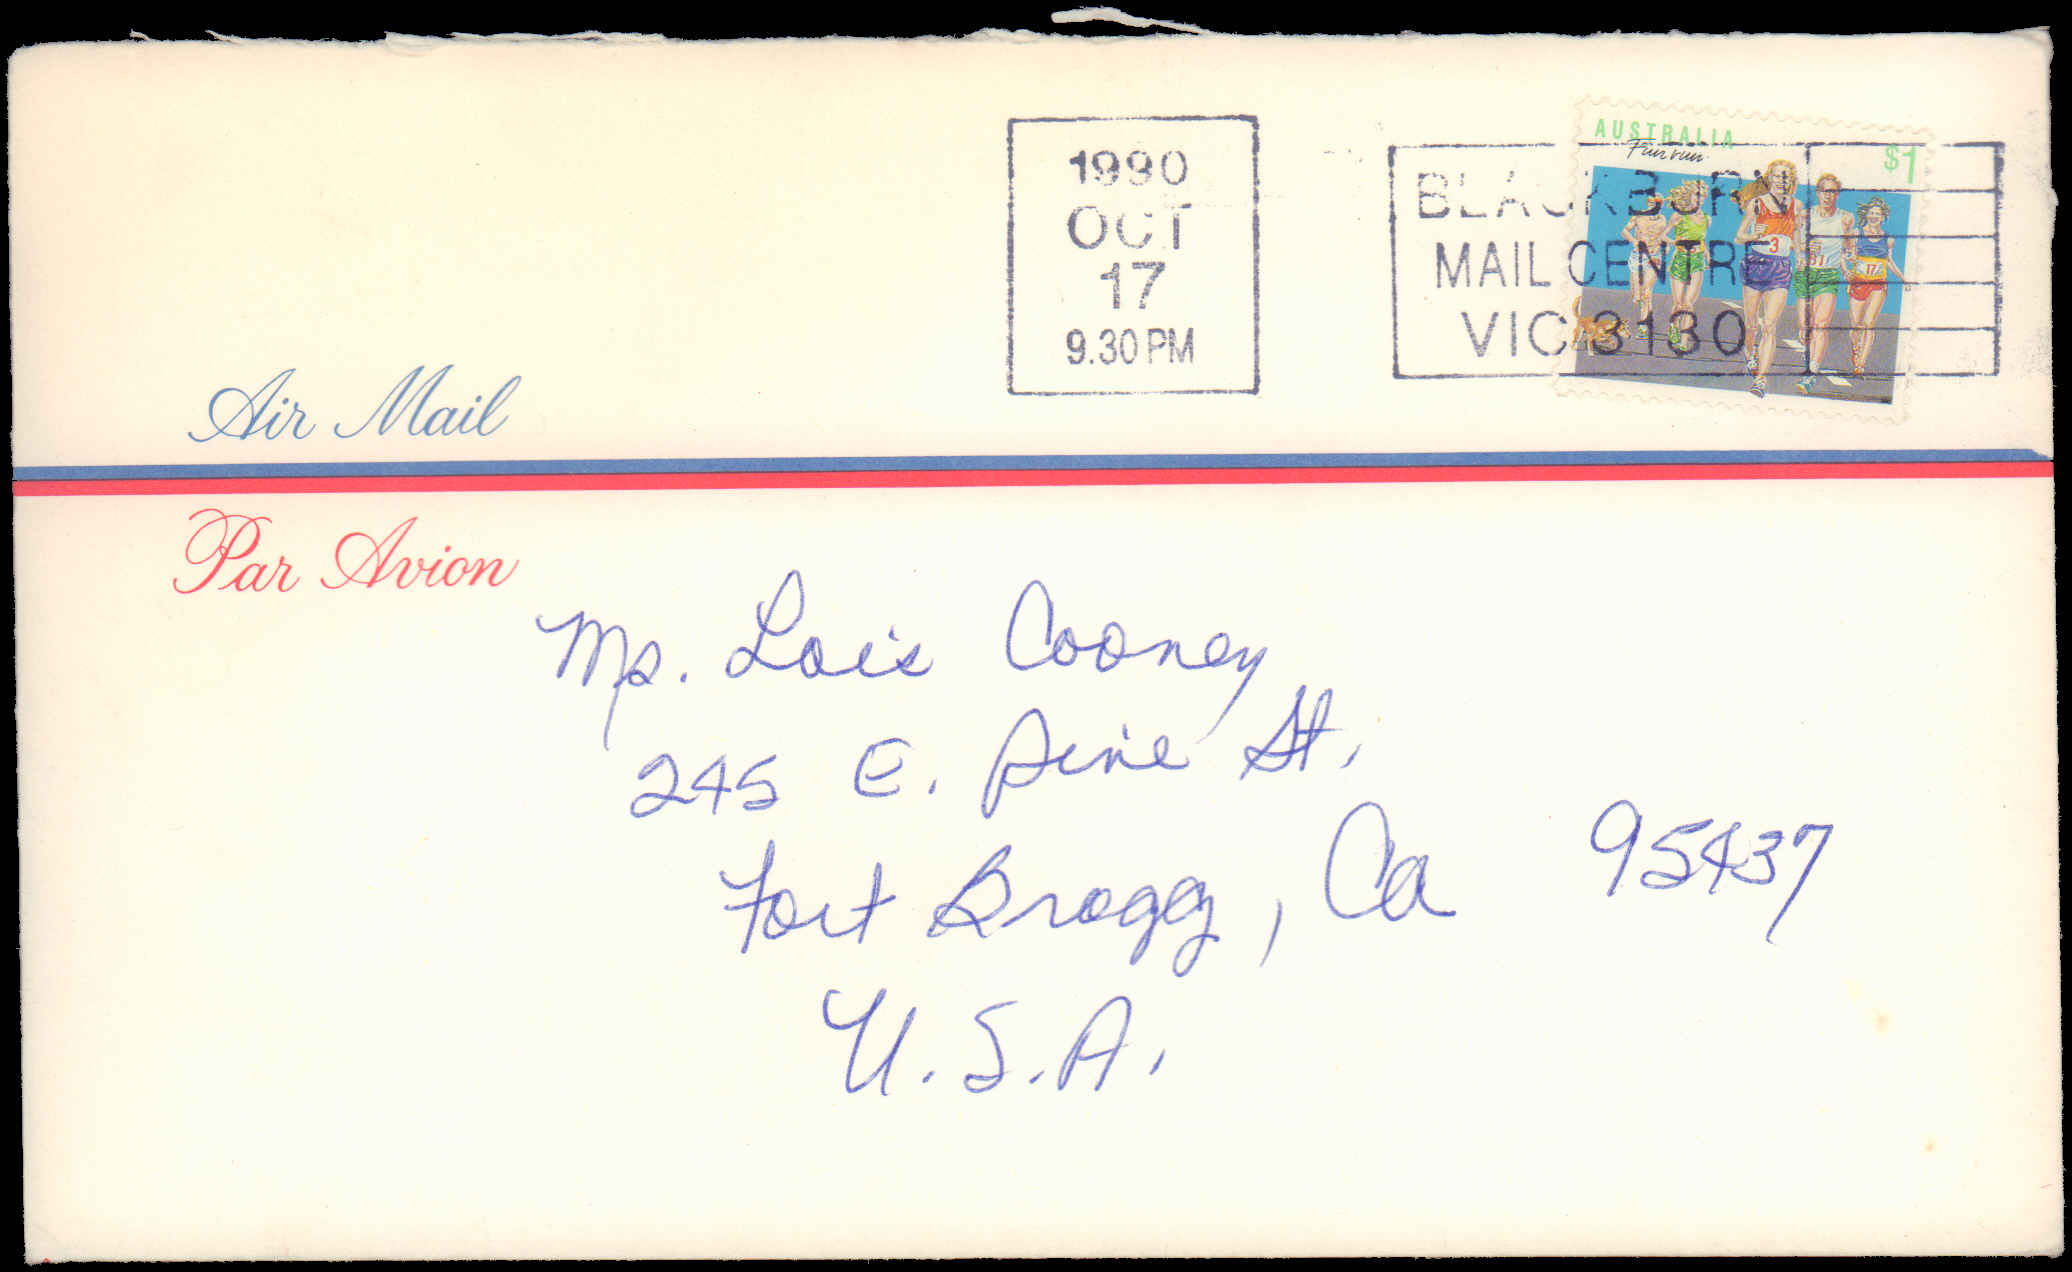 1990
OCT
17
9.30 PM
BLACKBURN
MAIL CENTRE
VIC 3130
AUSTRALIA
Fun run
$1
3
17
Air Mail
Par Avion
Ms. Lois Cooney
245 E. Pine St.
Fort Bragg, Ca 95437
U.S.A.